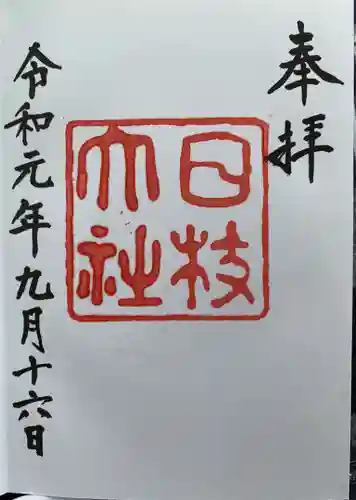 奉拝
日枝
大社
令和元年九月十六日